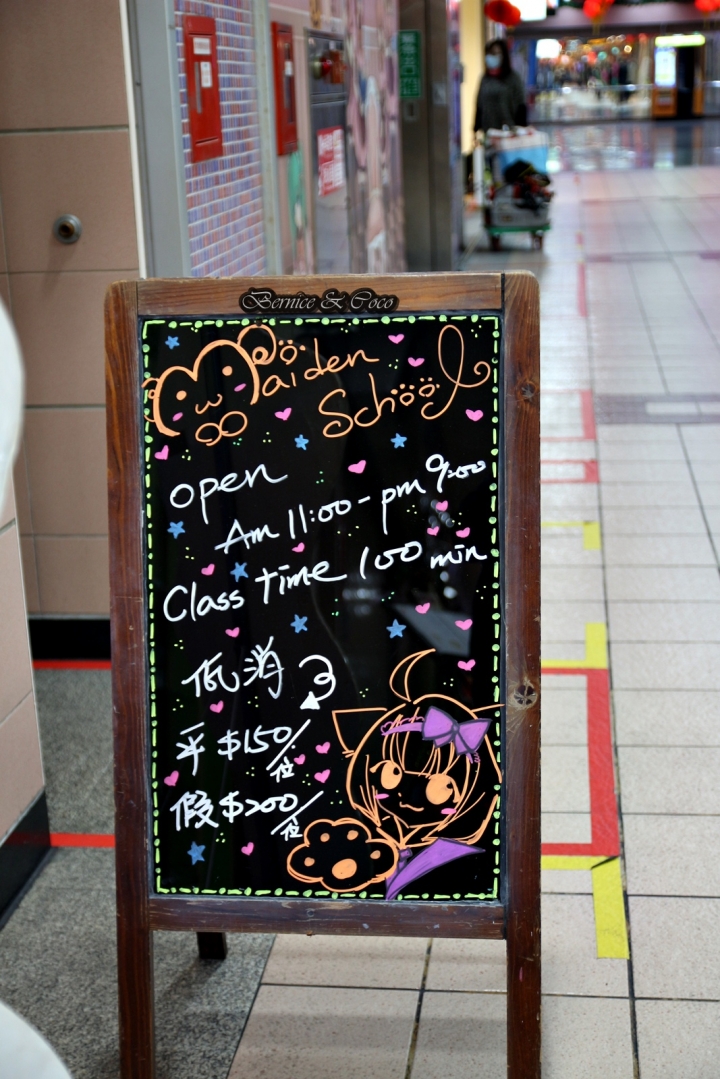 Bernice & Coco
Maiden
School
open
Am 11:00 - pm 9:00
Class time 100 min
低消
平 $150/位
假 $200/位